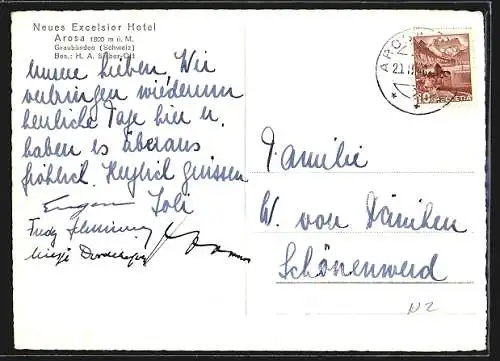 Neues Excelsior Hotel
Arosa 1800 m ü. M.
Graubünden (Schweiz)
Bes.: H. A. Sieber-Ott
Meine Lieben, Wir
verbringen wiederum
herrliche Tage hier u.
haben es überaus
fröhlich. Herzlich grüssen
Eugen Loli
Trudy
AROSA
10 HELVETIA
Familie
W. von Däniken
Schönenwerd
NZ